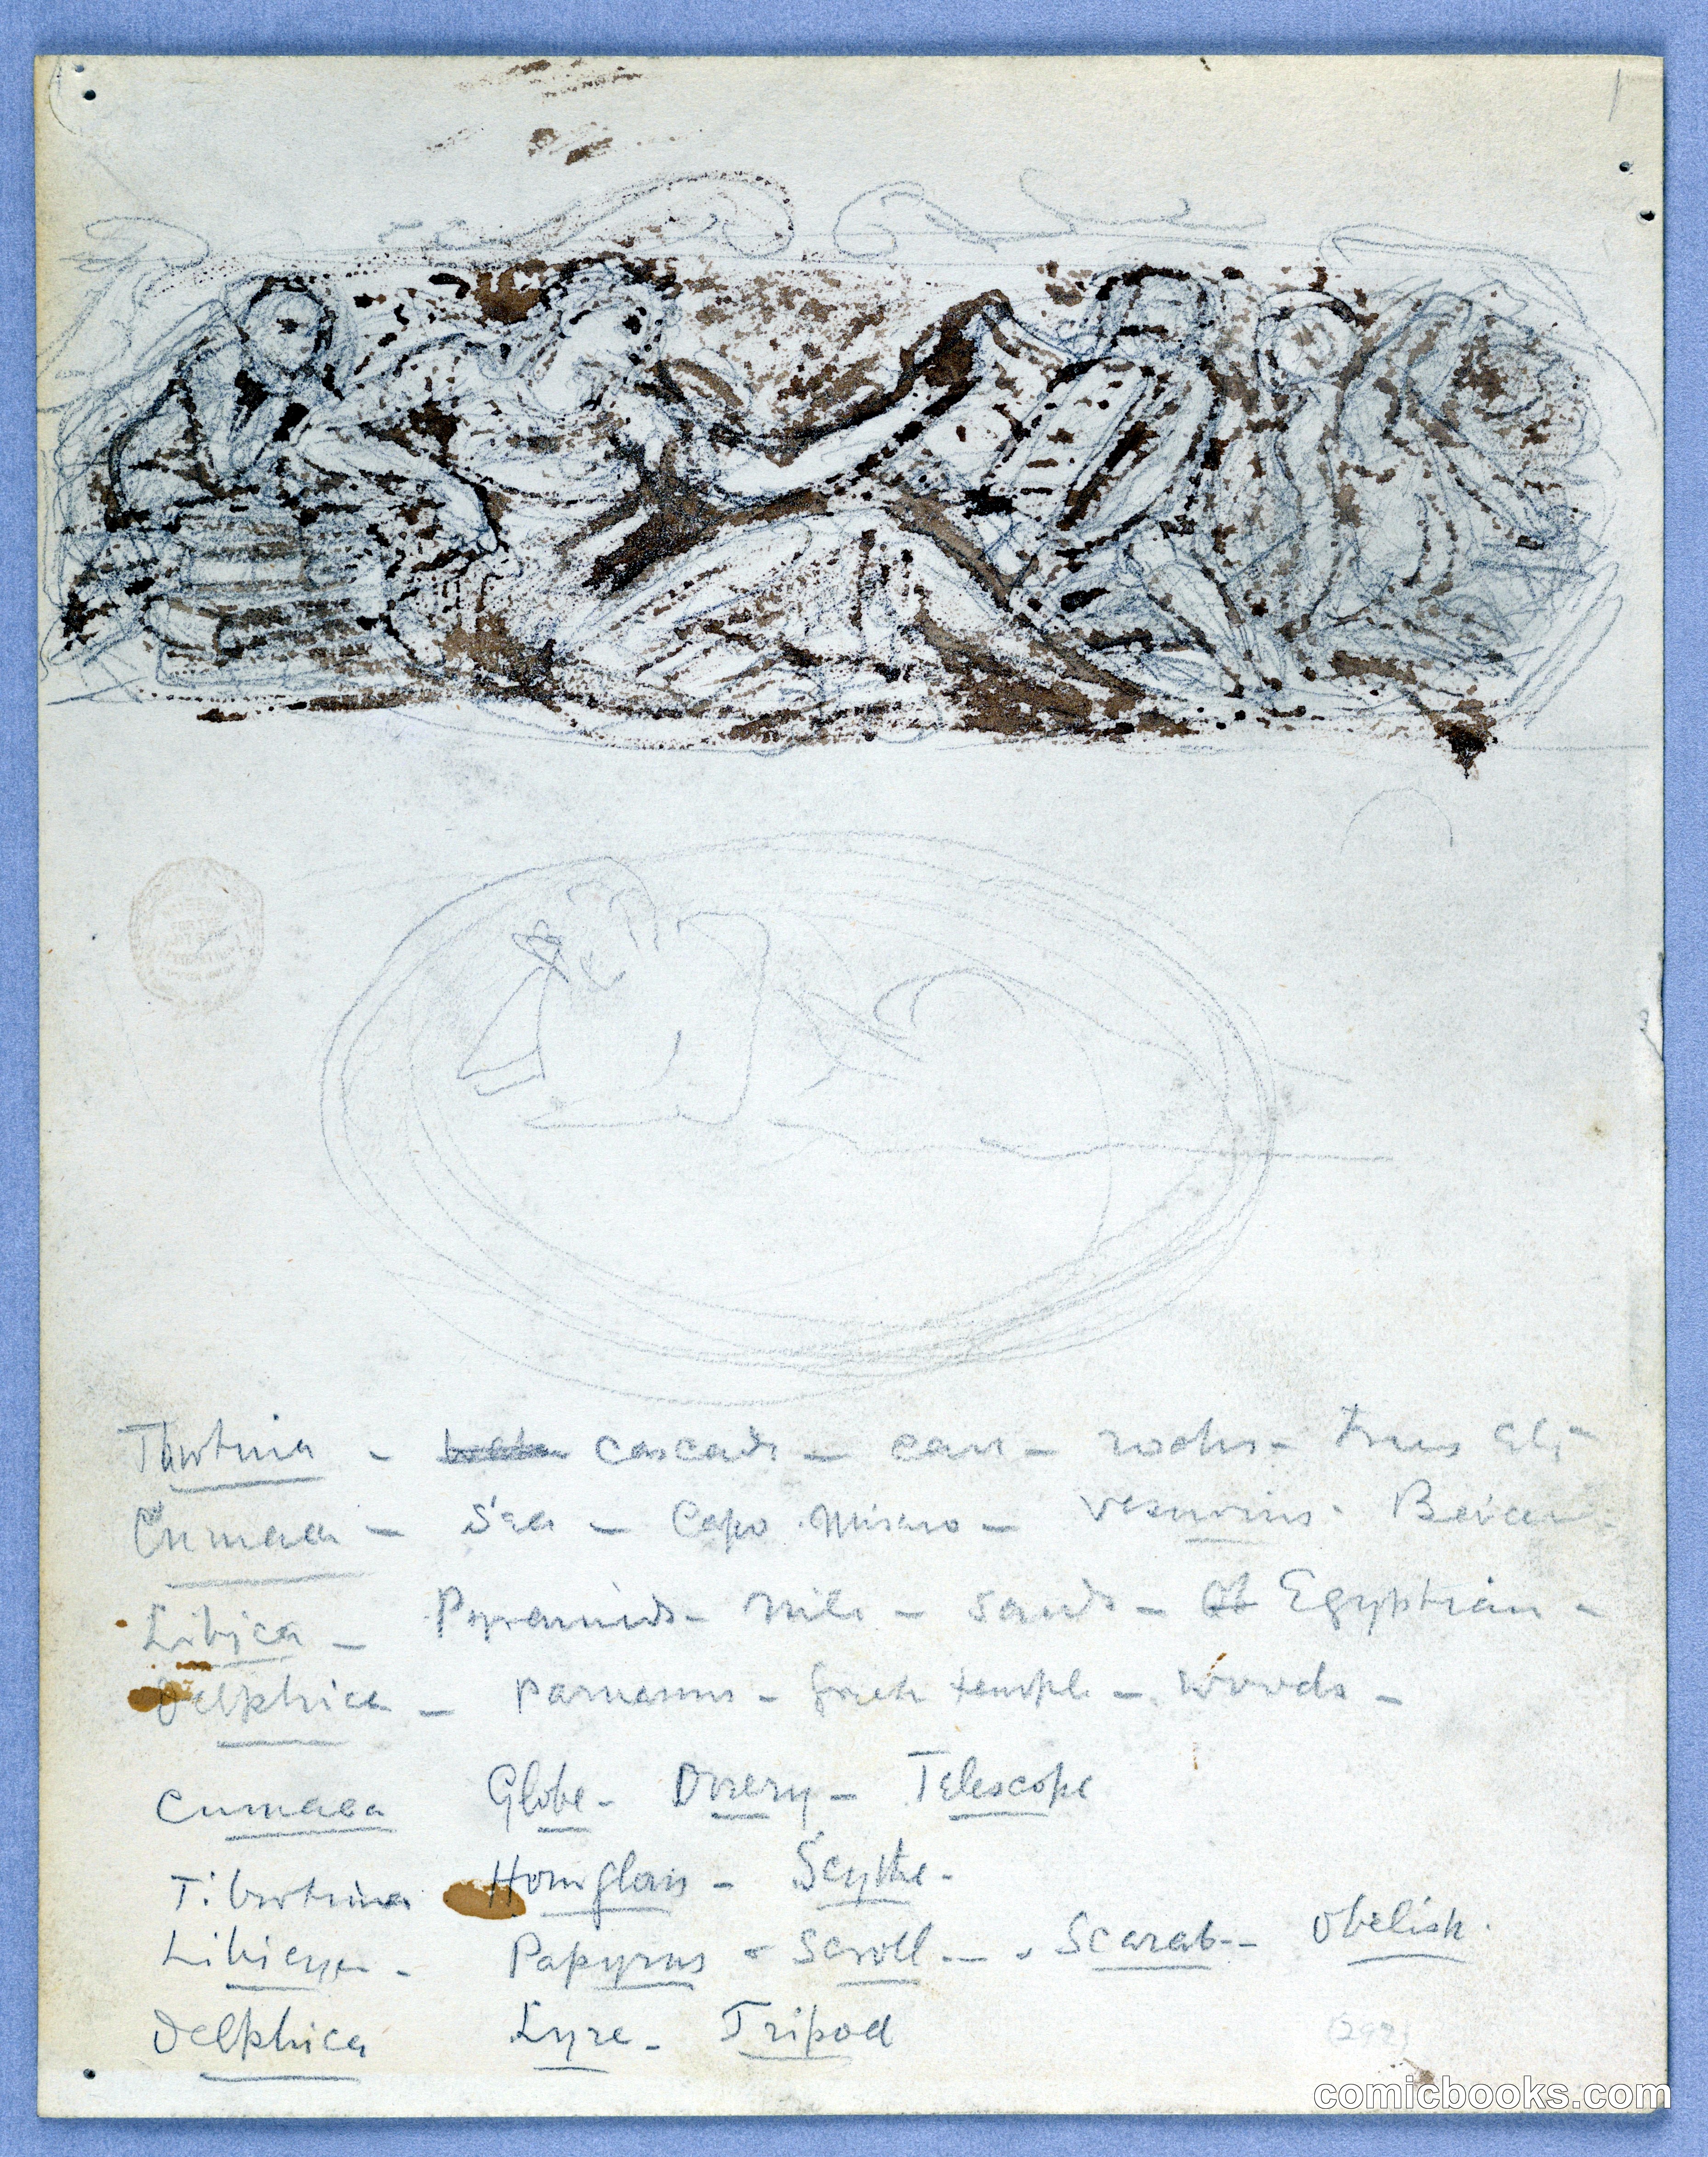 Tiburtina - cascade - cave - rocks - trees etc -
Cumaea - Sea - Capo Miseno - Vesuvius -
Libica - Pyramids - Nile - Sands - Egyptian -
Delphica - Parnassus - Greek temple - Woods -
Cumaea Globe - Orrery - Telescope
Tiburtina Hourglass - Scythe -
Papyrus - Scroll - Scarab - Obelisk.
Delphica Lyre - Tripod
(292)
comicbooks.com